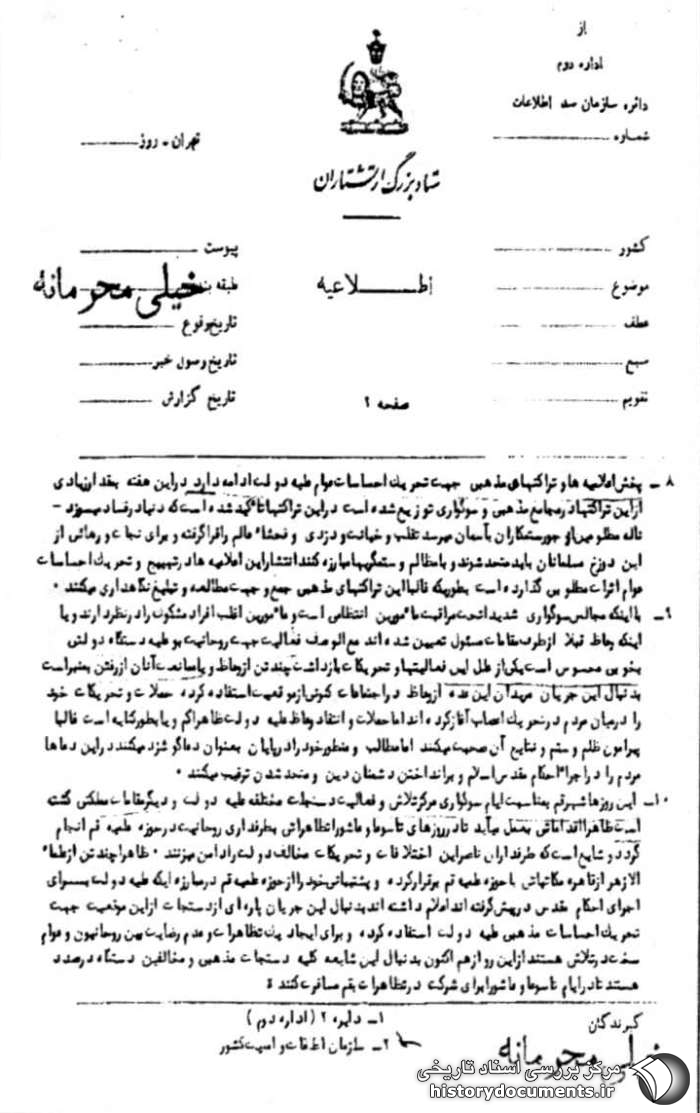 از
اداره دوم
دائره سازمان ضد اطلاعات
شماره
تهران - روز
ستاد بزرگ ارتشتاران
کشور
پیوست
موضوع
اطلاعیه
خیلی محرمانه
عطف
تاریخ وقوع
منبع
تاریخ وصول خبر
تقویم
صفحه ۲
تاریخ گزارش
۸ـ پخش اعلامیه ها و تراکتهای مذهبی جهت تحریک احساسات عوام علیه دولت ادامه دارد در این هفته بقدر زیادی
از این تراکتها در مجامع مذهبی و سوگواری توزیع شده است در این تراکتها تاکید شده است که دنیا در فساد میسوزد -
ناله مظلومین از جور ستمکاران بآسمان میرسد تقلب و خیانت و دزدی و فحشاء عالم را فرا گرفته و برای نجات و رهائی از
این دوزخ مسلمانان باید متحد شوند و با مظالم و ستمگیها مبارزه کنند انتشار این اعلامیه ها در تهییج و تحریک احساسات
عوام اثرات مطلوبی گذارده است بطوریکه غالبا این تراکتهای مذهبی جمع و جهت مطالعه و تبلیغ نگاهداری میکنند ۰
۹ـ با اینکه مجالس سوگواری شدیدا تحت مراقبت مأمورین انتظامی است و مأمورین اغلب افراد مشکوک را در نظر دارند و یا
اینکه وعاظ قبلا از طرف مقامات مسئول تعیین شده اند مع الوصف فعالیت جهت روحانیت بر علیه دستگاه دولتی
بخوبی محسوس است یکی از علل این فعالیتها و تحریکات بازداشت چند تن از وعاظ و یا ممانعت آنان از رفتن بمنبر است
بدنبال این جریان مریدان این عده از وعاظ در اجتماعات کنونی از موقعیت استفاده کرده حملات و تحریکات خود
را در میان مردم در تحریک اعصاب آغاز کرده اند اما حملات و انتقاد وعاظ علیه دولت ظاهرا کم و یا بطور کنایه است غالبا
پیرامون ظلم و ستم و نتایج آن صحبت میکنند اما مطالب و منظور خود را در پایان بعنوان دعا گوشزد میکنند در این دعاها
مردم را در اجراء احکام مقدس اسلام و برانداختن دشمنان دین و متحد شدن ترغیب میکنند ۰
۱۰ـ این روزها شهر قم بمناسبت ایام سوگواری مرکز تلاش و فعالیت دستجات مختلفه علیه دولت و دیگر مقامات مملکتی گشته
است ظاهرا اقداماتی بعمل میآید تا در روزهای تاسوعا و عاشورا تظاهراتی بطرفداری روحانیت در حوزه علمیه قم انجام
گردد و شایع است که طرفداران ناصر این اختلافات و تحریکات مخالف دولت را دامن میزنند ۰ ظاهرا چند تن از علماء
الازهر از قاهره مکاتباتی با حوزه علمیه قم برقرار کرده و پشتیبانی خود را از حوزه علمیه قم در مبارزه ایکه علیه دولت بسرای
اجرای احکام مقدس در پیش گرفته اند اعلام داشته اند بدنبال این جریان پاره ای از دستجات از این موقعیت جهت
تحریک احساسات مذهبی علیه دولت استفاده کرده و برای ایجاد یک تظاهرات و عدم رضایت بین روحانیون و عوام
سخت در تلاش هستند از این رو از هم اکنون بدنبال این شایعه کلیه دستجات مذهبی و مخالفین دستگاه در صدد
هستند تا در ایام تاسوعا و عاشورا برای شرکت در تظاهرات بقم مسافرت کنند ۰
گیرندگان
۱ـ دایره ۲ (اداره دوم)
۲ـ سازمان اطلاعات و امنیت کشور
خیلی محرمانه
مرکز بررسی اسناد تاریخی
historydocuments.ir